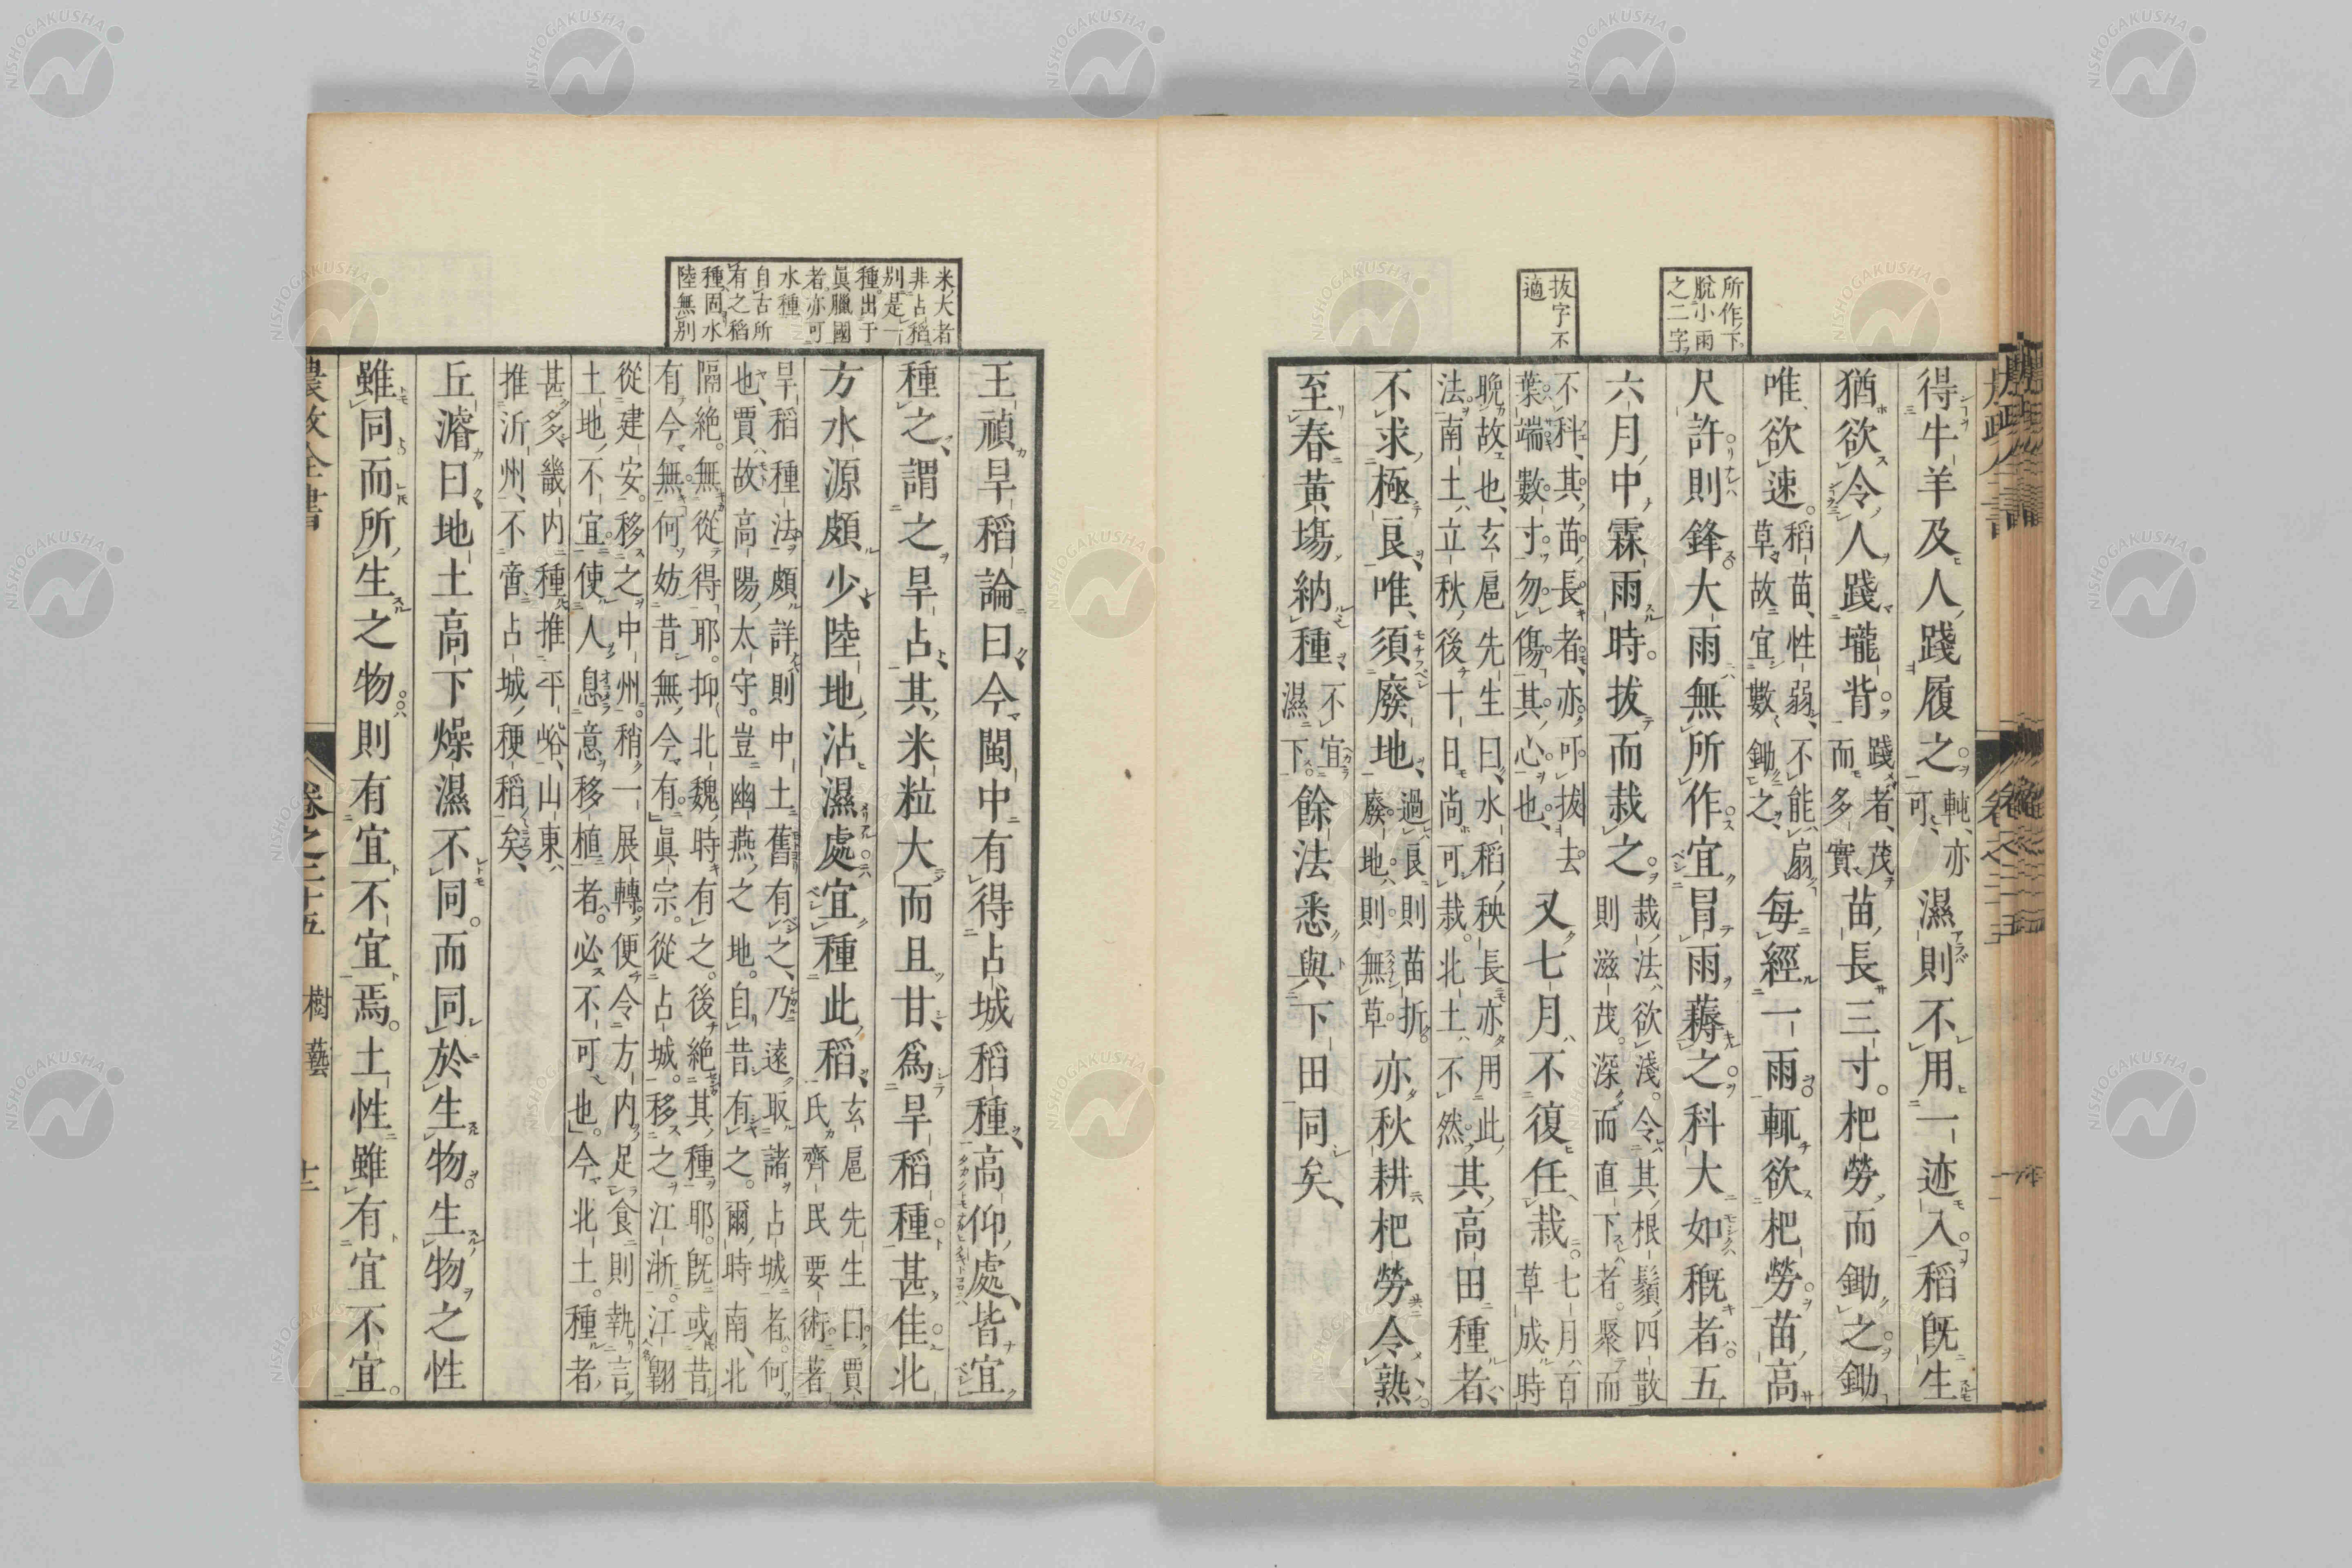 所作下
脱小雨
之二字
拔字不
適
得牛羊及人踐履之
軘亦
可
濕則不用一迹入稻既生
猶欲令人踐壠背
踐者茂
而多實
苗長三寸杷勞而鋤之鋤
唯欲速。
稻苗性弱不能扇
草故宜數鋤之
每經一雨輒欲杷勞苗高
尺許則鋒大雨無所作宜冒雨薅之科大如穊者五
六月中霖雨時拔而栽之
栽法欲淺令其根鬚四散
則滋茂深而直下者聚而
不科其苗長者亦可拔去
葉端數寸勿傷其心也
又七月不復任栽
七月百
草成時
晩故也玄扈先生曰水稻秧長亦用此
法南土立秋後十日尚可栽北土不然
其高田種者
不求極良唯須廢地
過良則苗折
廢地則無草
亦秋耕杷勞令熟
至春黃塲納種
不宜
濕下
餘法悉與下田同矣
米大者
非占稻
別是一
種出于
眞臘國
者亦可
水種
自古所
有之稻
種固水
陸無別
王禎旱稻論曰今閩中有得占城稻種高仰處皆宜
種之謂之旱占其米粒大而且甘爲旱稻種甚佳北
方水源頗少陸地沾濕處宜種此稻
玄扈先生曰賈
氏齊民要術著
旱稻種法頗詳則中土舊有之乃遠取諸占城者何
也賈故高陽太守豈幽燕之地自昔有之爾時南北
隔絶無從得耶抑北魏時有之後絶其種耶既或昔
有今無何妨昔無今有眞宗從占城移之江浙江翺
從建安移之中州稍一展轉便令方内足食則執言
土地不宜使人息意移植者必不可也今北土種者
甚多畿内種推平峪山東
推沂州不啻占城稉稻矣
丘濬曰地土高下燥濕不同而同於生物生物之性
雖同而所生之物則有宜不宜焉土性雖有宜不宜
農政全書 卷之二十五 樹藝
NISHOGAKUSHA